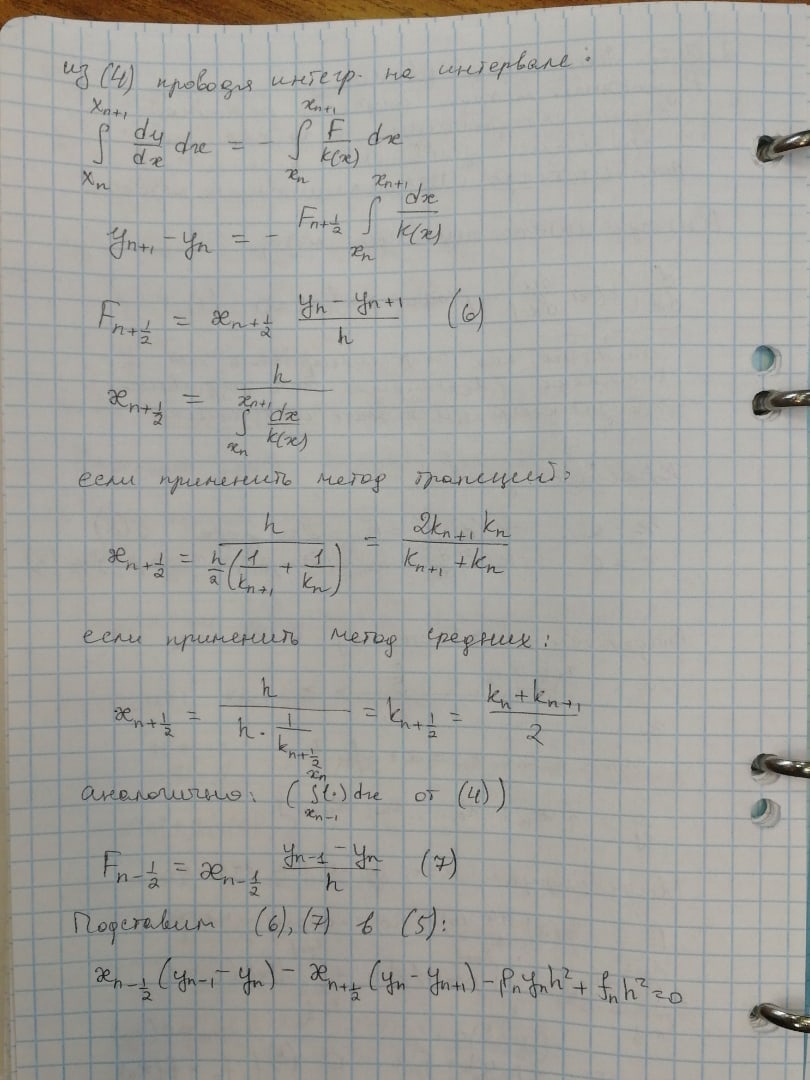 из (4) проводя интегр. на интервале:
∫_{x_n}^{x_{n+1}} dy/dx dx = - ∫_{x_n}^{x_{n+1}} F/k(x) dx
y_{n+1} - y_n = - F_{n+1/2} ∫_{x_n}^{x_{n+1}} dx/k(x)
F_{n+1/2} = æ_{n+1/2} (y_n - y_{n+1})/h (6)
æ_{n+1/2} = h / ∫_{x_n}^{x_{n+1}} dx/k(x)
если применить метод трапеций:
æ_{n+1/2} = h / (h/2 (1/k_{n+1} + 1/k_n)) = 2k_{n+1} k_n / (k_{n+1} + k_n)
если применить метод средних:
æ_{n+1/2} = h / (h · 1/k_{n+1/2}) = k_{n+1/2} = (k_n + k_{n+1})/2
аналогично: (∫_{x_{n-1}}^{x_n} (·) dx от (4))
F_{n-1/2} = æ_{n-1/2} (y_{n-1} - y_n)/h (7)
Подставим (6), (7) в (5):
æ_{n-1/2} (y_{n-1} - y_n) - æ_{n+1/2} (y_n - y_{n+1}) - p_n y_n h² + f_n h² = 0